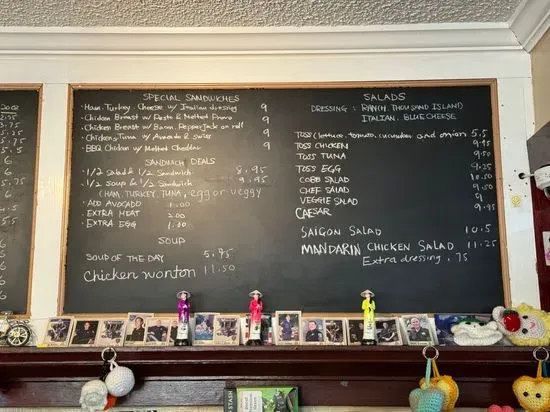 2002
2.75
3.75
5.75
5.75
6
6
5.75
6
6
6
6
SPECIAL SANDWICHES
Ham, Turkey, Cheese w/ Italian dressing 9
Chicken Breast w/ Pesto & Melted Provo 9
Chicken Breast w/ Bacon, Pepper Jack on roll 9
Chicken, Tuna w/ Avocado & Swiss 9
BBQ Chicken w/ Melted Cheddar 9
SANDWICH DEALS
1/2 Salad & 1/2 Sandwich 8.95
1/2 Soup & 1/2 Sandwich 9.95
(HAM, TURKEY, TUNA, egg or veggy
ADD AVOCADO 1.00
EXTRA MEAT 2.00
EXTRA EGG 1.00
SOUP
SOUP OF THE DAY 5.95
Chicken wonton 11.50
SALADS
DRESSING: RANCH, THOUSAND ISLAND
ITALIAN, BLUE CHEESE
TOSS (lettuce, tomato, cucumber and onion 5.5
TOSS CHICKEN 9.95
TOSS TUNA 9.50
TOSS EGG 9.25
COBB SALAD 10.50
CHEF SALAD 9.50
VEGGIE SALAD 9
CAESAR 9.95
SAIGON SALAD 10.5
MANDARIN CHICKEN SALAD 11.25
Extra dressing .75
STASH